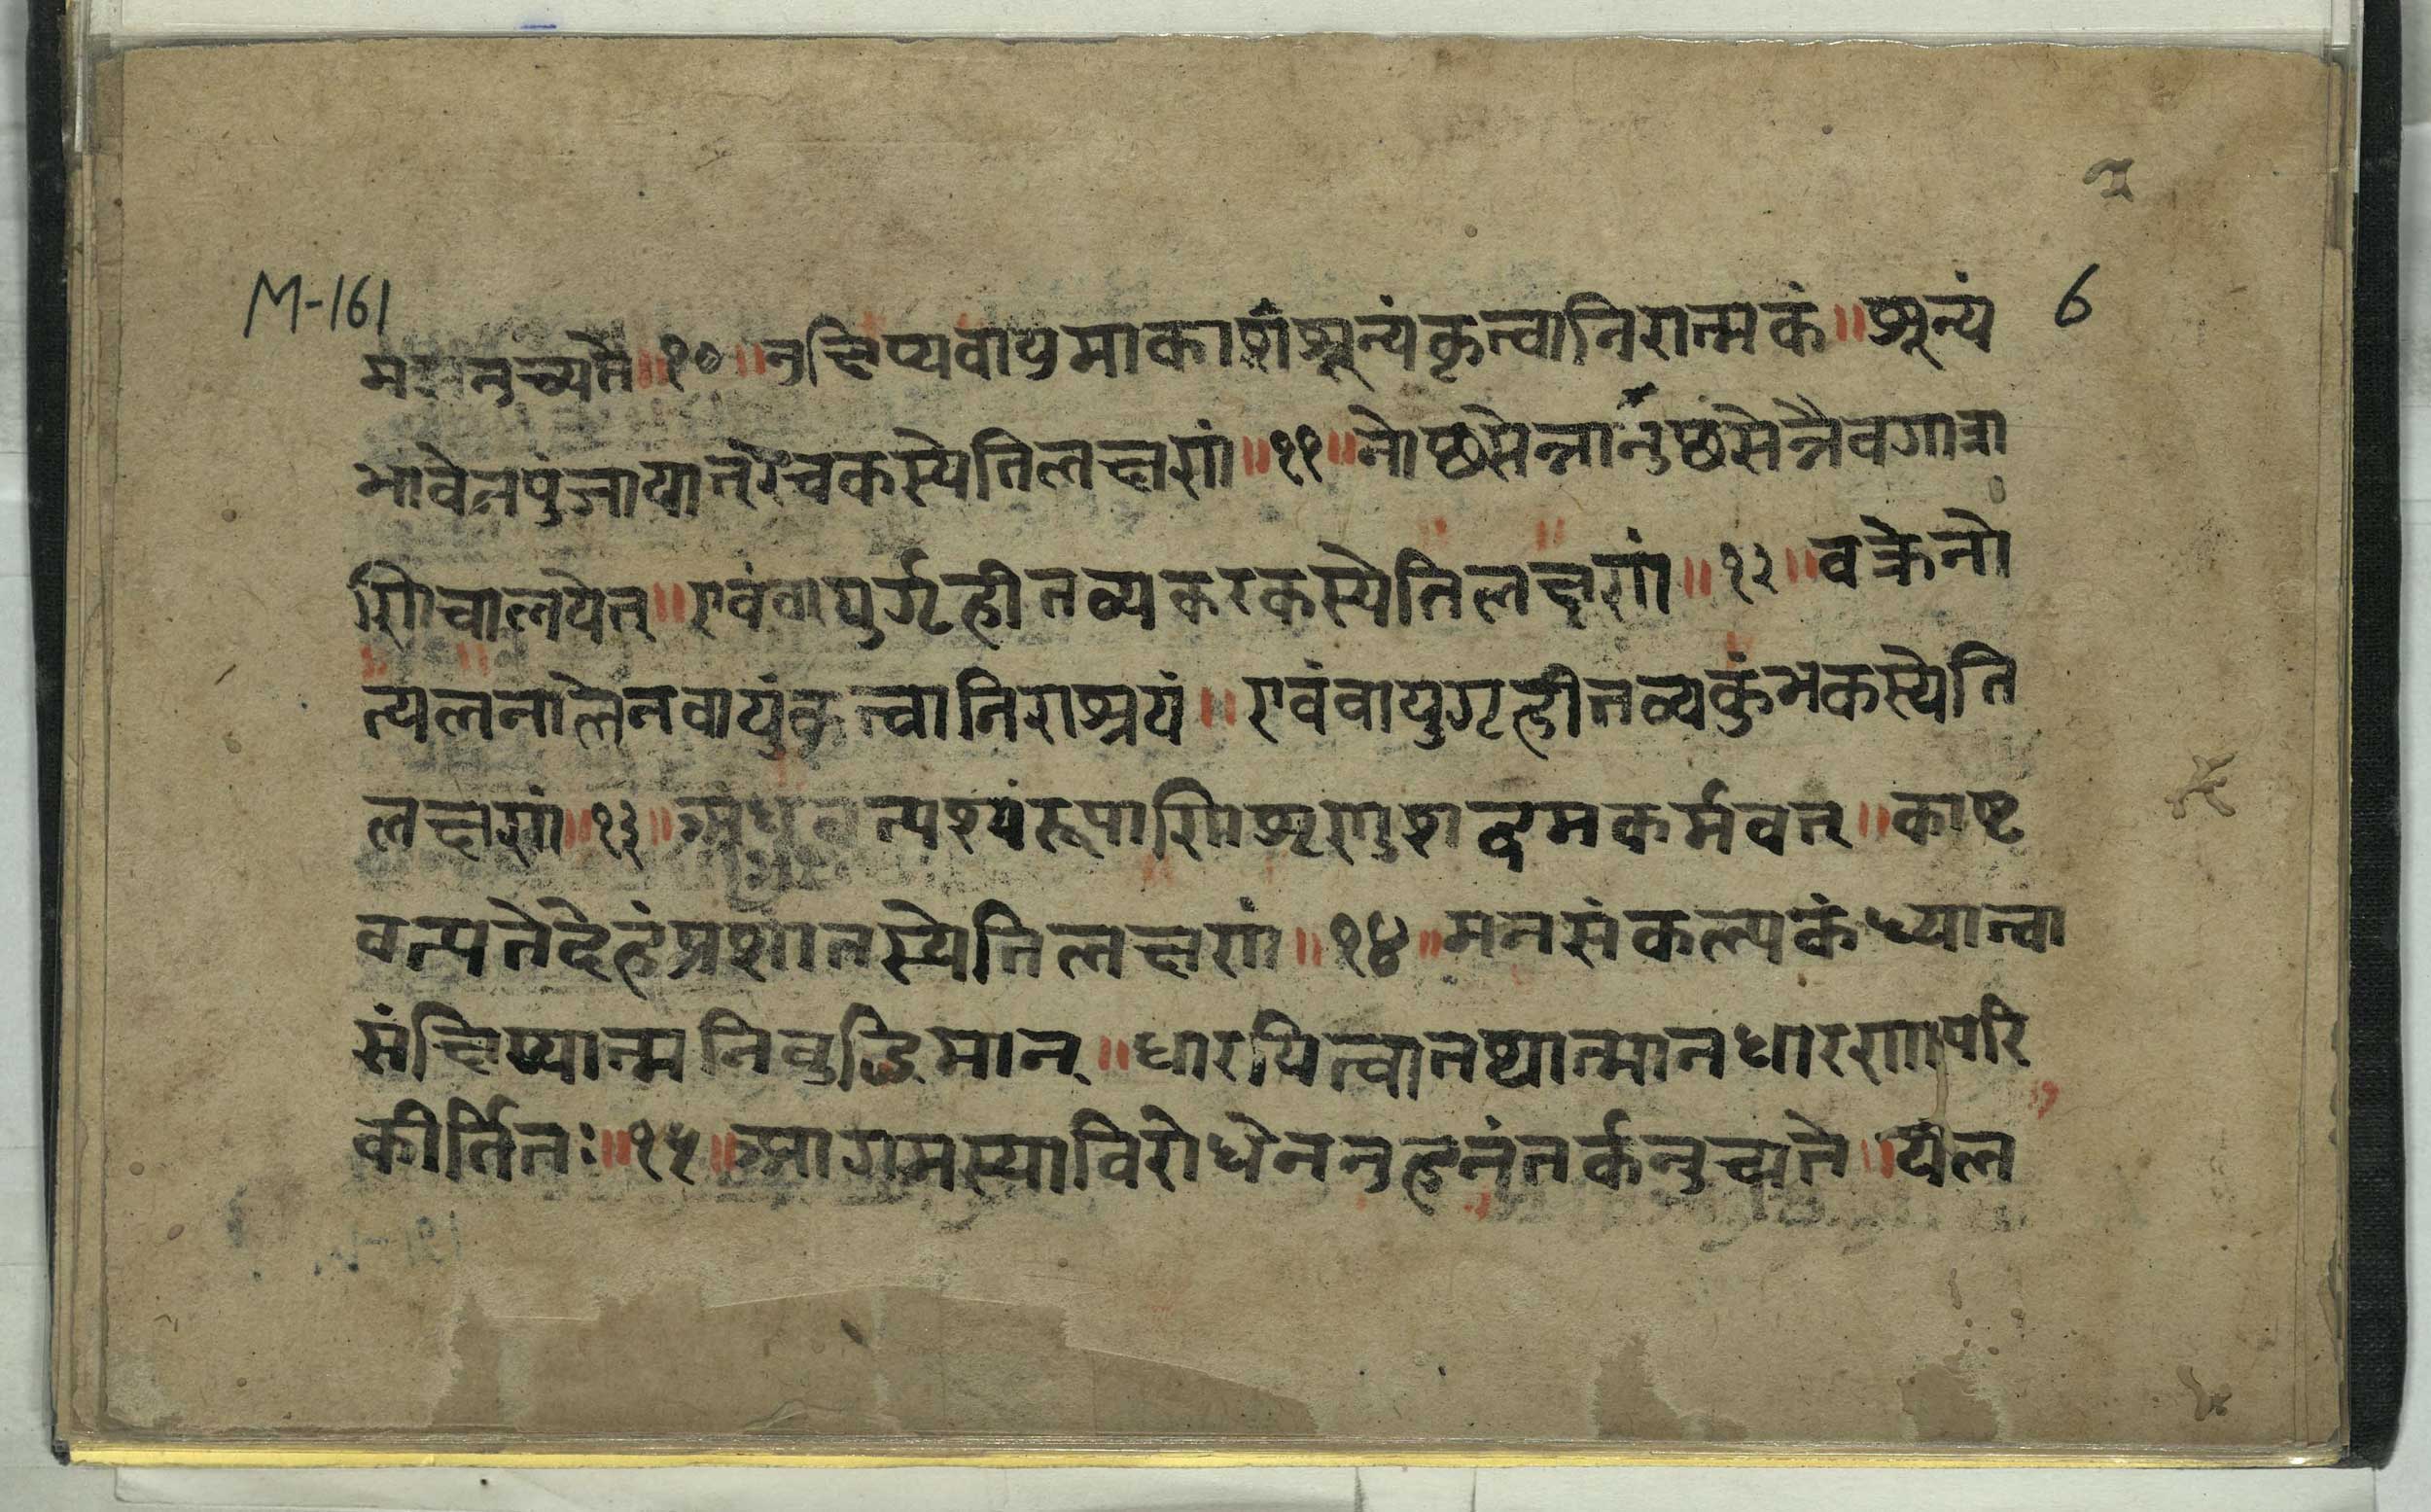 M-161
6
नुच्यते ॥ १० ॥ नुत्क्षिप्यवायुमाकाशंशून्यंकृत्वानिरात्मकं ॥ शून्यं
भावेनपुंजायात्रेचकस्येतिलक्षणं ॥ ११ ॥ नोछसेन्नानुछसेन्नैवगात्रा
णिचालयेत् ॥ एवंवायुर्गृहीतव्यकरकस्येतिलक्षणं ॥ १२ ॥ वक्त्रेनो
त्यलनालेनवायुंकृत्वानिराश्रयं ॥ एवंवायुगृहीतव्यकुंभकस्येति
लक्षणं ॥ १३ ॥ अधवत्पश्यंरूपाणिशृणुशब्दमकर्मवत् ॥ काष्ट
वत्पतेदेहंप्रशांतस्येतिलक्षणं ॥ १४ ॥ मनसंकल्पकंध्यात्वा
संक्षिप्यात्मनिवुद्धिमान् ॥ धारयित्वातथात्मानधारणापरि
कीर्तितः ॥ १५ ॥ आगमस्याविरोधेननुहनंतर्कनुच्यते ॥ यंल